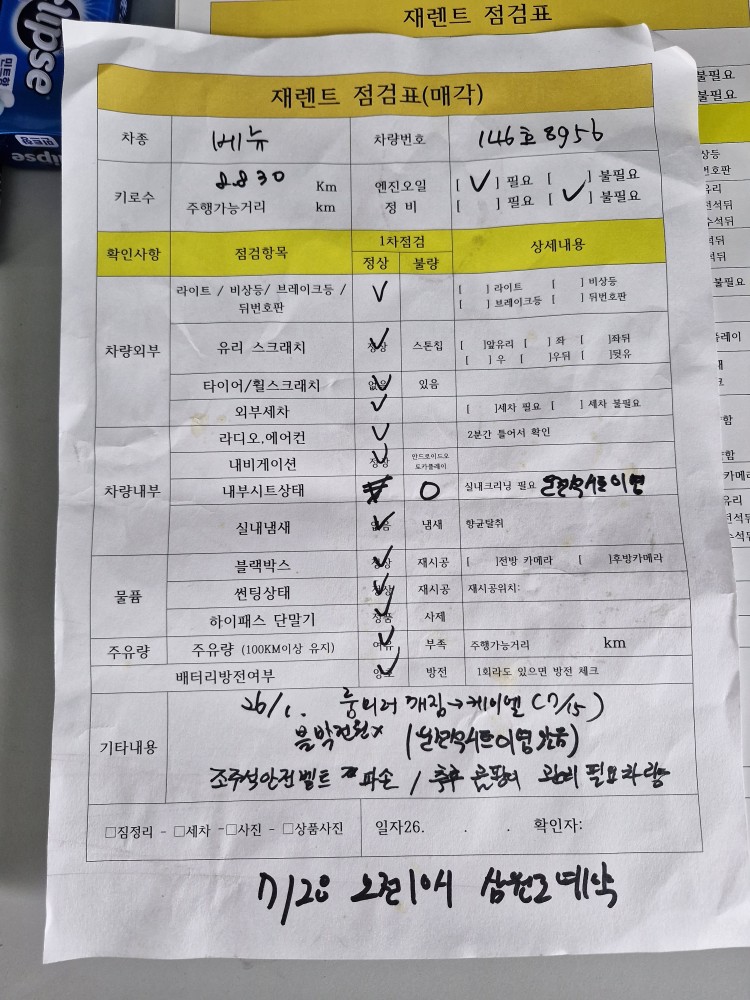 재렌트 점검표
재렌트 점검표(매각)
차종 베뉴 차량번호 146호 8956
키로수 8830 Km 엔진오일 [ ✓ ] 필요 [ ] 불필요
주행가능거리 km 정 비 [ ] 필요 [ ✓ ] 불필요
확인사항 점검항목 1차점검 상세내용
정상 불량
차량외부
라이트 / 비상등/ 브레이크등 / 뒤번호판 ✓ [ ] 라이트 [ ] 비상등
[ ] 브레이크등 [ ] 뒤번호판
유리 스크래치 정상 ✓ 스톤칩 [ ]앞유리 [ ] 좌 [ ]좌뒤
[ ] 우 [ ]우뒤 [ ]뒷유
타이어/휠스크래치 없음 ✓ 있음
외부세차 ✓ [ ]세차 필요 [ ] 세차 불필요
차량내부
라디오,에어컨 ✓ 2분간 틀어서 확인
내비게이션 정상 ✓ 안드로이드오토카플레이
내부시트상태 O 실내크리닝 필요
실내냄새 없음 ✓ 냄새 향균탈취
물품
블랙박스 정상 ✓ 재시공 [ ]전방 카메라 [ ]후방카메라
썬팅상태 정상 ✓ 재시공 재시공위치:
하이패스 단말기 정품 ✓ 사제
주유량 주유량 (100KM이상 유지) 여유 ✓ 부족 주행가능거리 km
배터리방전여부 양호 ✓ 방전 1회라도 있으면 방전 체크
기타내용
26/1. 룸미러 깨짐→케이엘 (7/15)
블박전원x (뒷좌석시트이염있음)
조수석안전벨트 파손 / 추후 곰팡이 관리 필요차량
□짐정리 - □세차 -□사진 - □상품사진 일자26. . . 확인자:
7/28 오전1시 삼원고예약